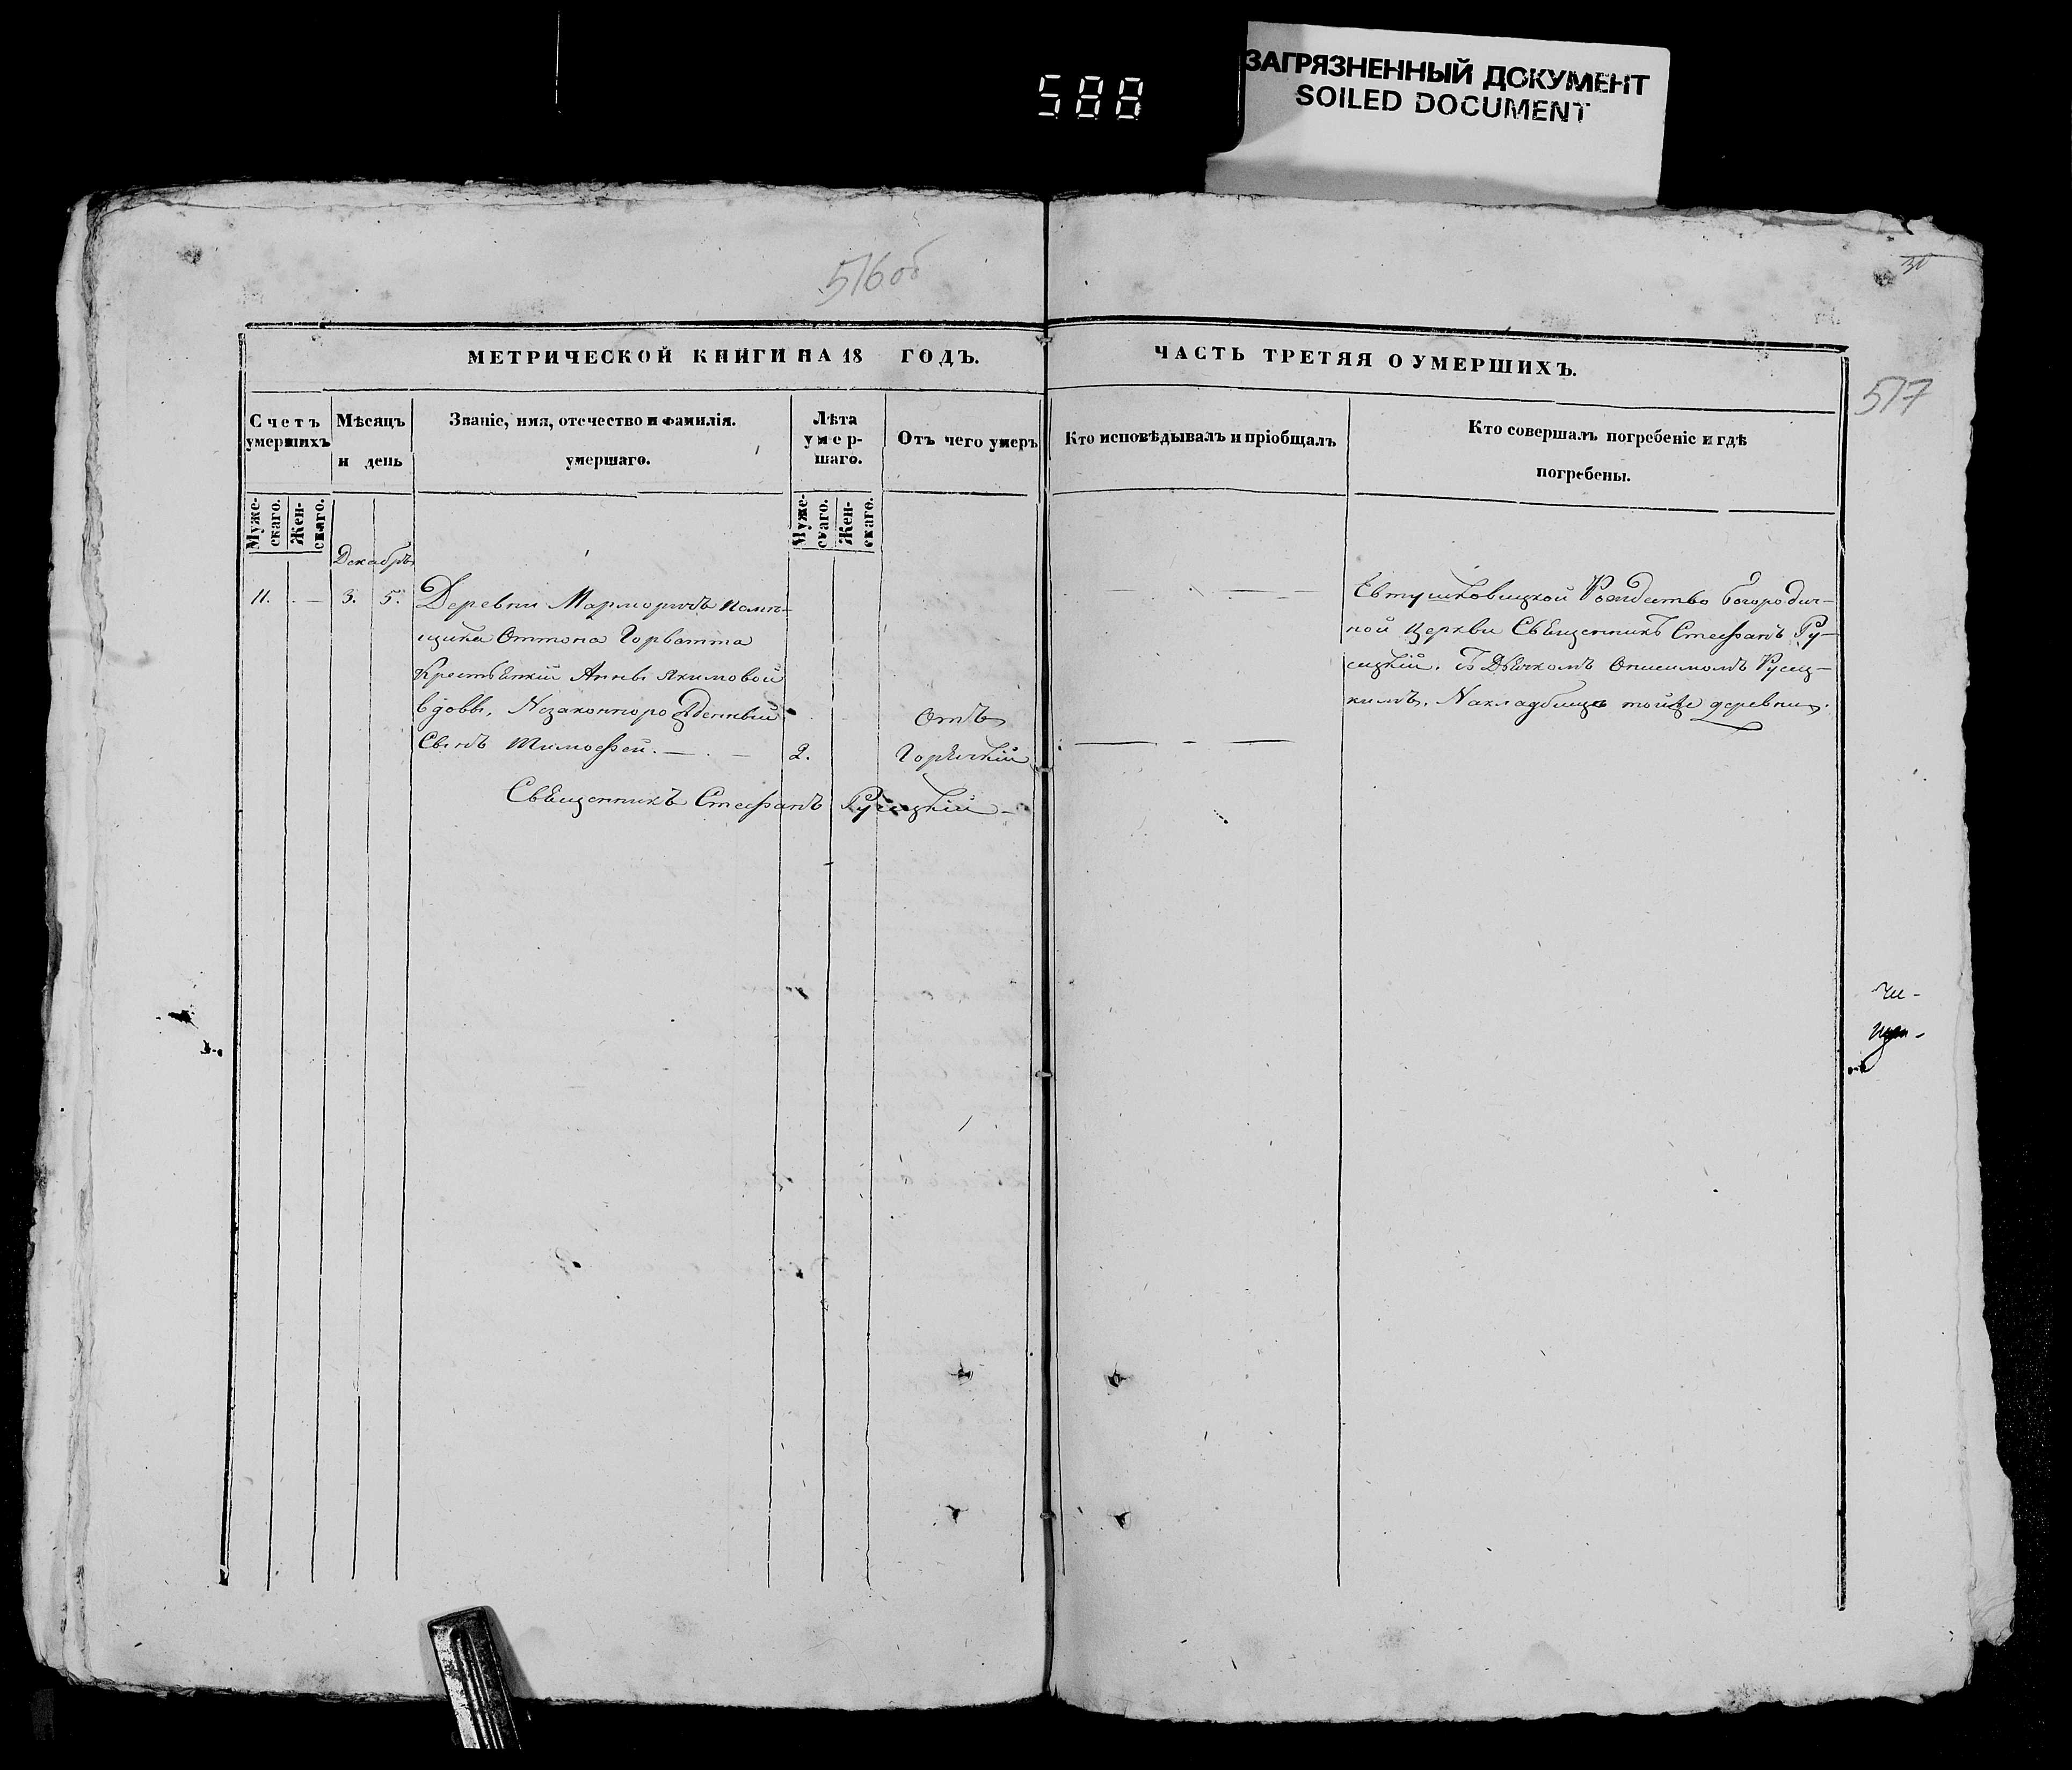 ЗАГРЯЗНЕННЫЙ ДОКУМЕНТ
SOILED DOCUMENT
588
516об
517
МЕТРИЧЕСКОЙ КНИГИ НА 18 ГОДЪ.
ЧАСТЬ ТРЕТЯЯ О УМЕРШИХЪ.
Счетъ умершихъ
Муже-скаго.
Жен-скаго.
Мѣсяцъ и день
Званіе, имя, отечество и фамилія.
умершаго.
Лѣта умер-шаго.
Муже-скаго.
Жен-скаго.
Отъ чего умеръ
Кто исповѣдывалъ и пріобщалъ
Кто совершалъ погребеніе и гдѣ
погребены.
Декабрь
11. — 3. 5. Деревни Марморичъ помѣ-
щика Оттона Горватта
Крестьянкій Анны Якимовой
вдовы, Незаконнорожденный
Сынъ Тимофей. — 2.
Отъ
Горячкій
Священникъ Стефанъ Русецкій
Евтушковицкой Рождество Богородич-
ной Церкви Священникъ Стефанъ Ру-
сецкій. Дьячкомъ Онисимомъ Русец-
кимъ. На кладбище тойже деревни.